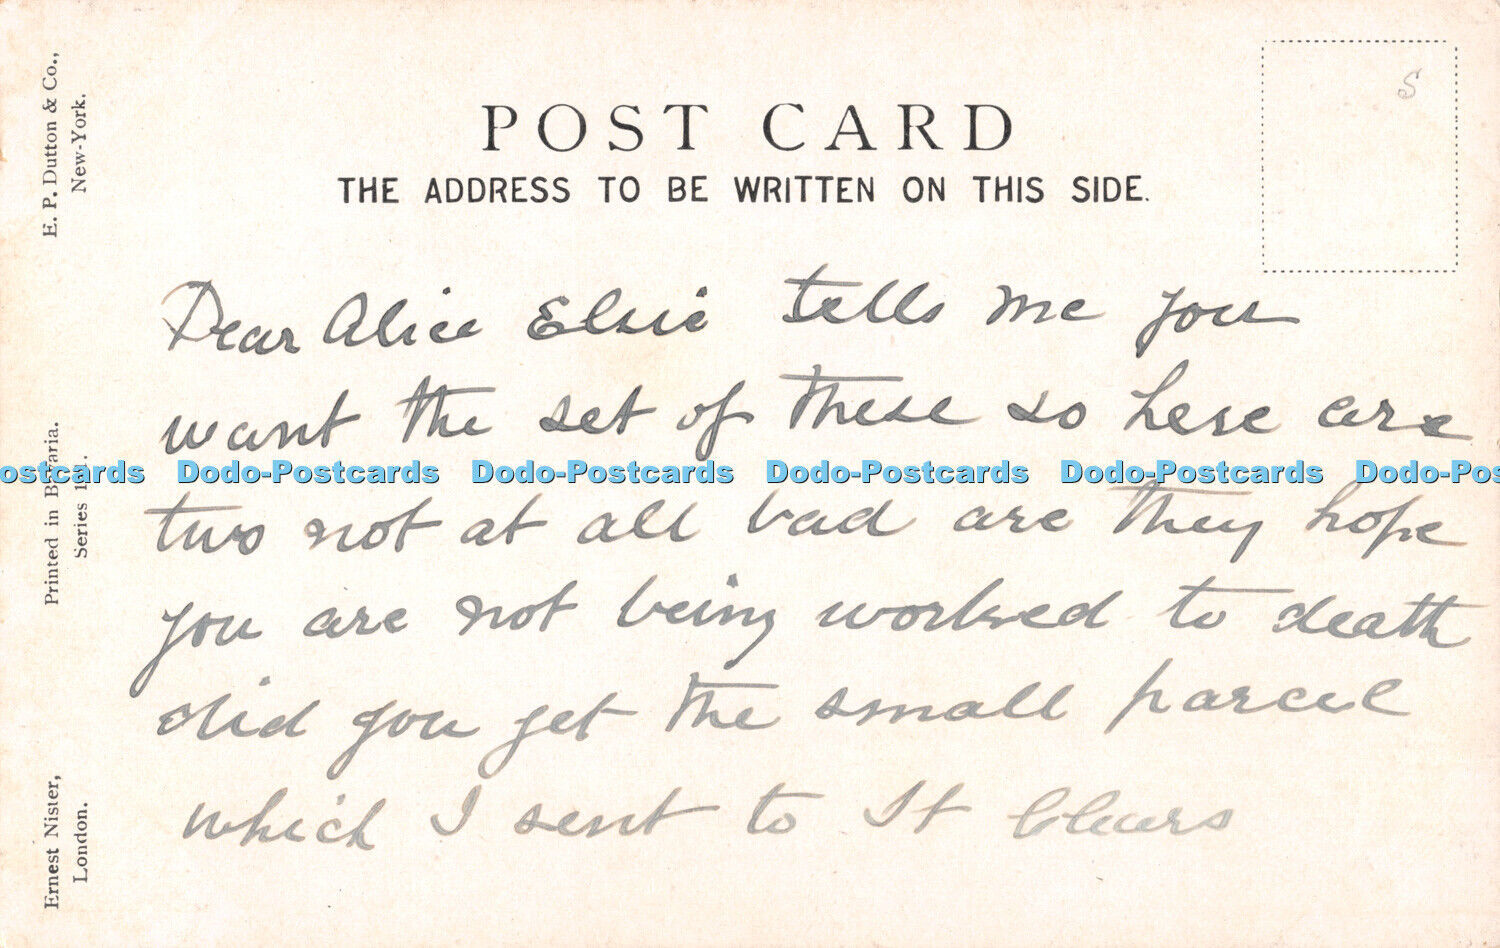 POST CARD
THE ADDRESS TO BE WRITTEN ON THIS SIDE.
S
E. P. Dutton & Co.,
New-York.
Printed in Bavaria.
Series
Ernest Nister,
London.
Dear Alice Elsie tells me you
want the set of these so here are
two not at all bad are they hope
you are not being worked to death
did you get the small parcel
which I sent to St
Dodo-Postcards Dodo-Postcards Dodo-Postcards Dodo-Postcards